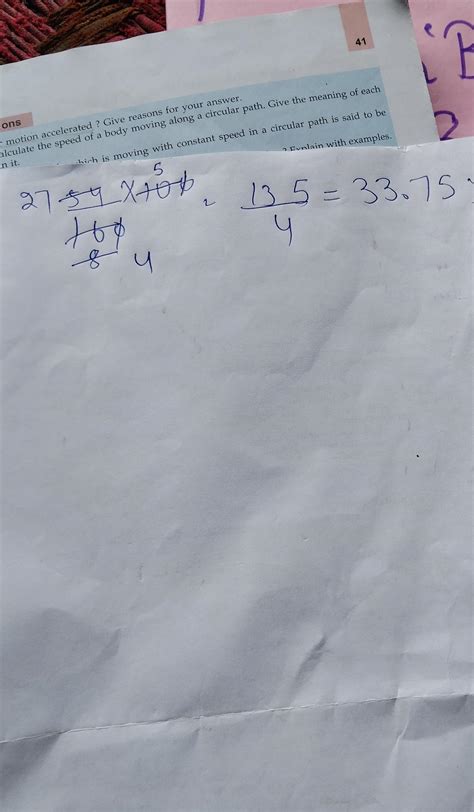 41
ons
motion accelerated ? Give reasons for your answer.
alculate the speed of a body moving along a circular path. Give the meaning of each
n it.
which is moving with constant speed in a circular path is said to be
? Explain with examples.
5
27 54 × 100 = 135 = 33.75
160 4
8 4